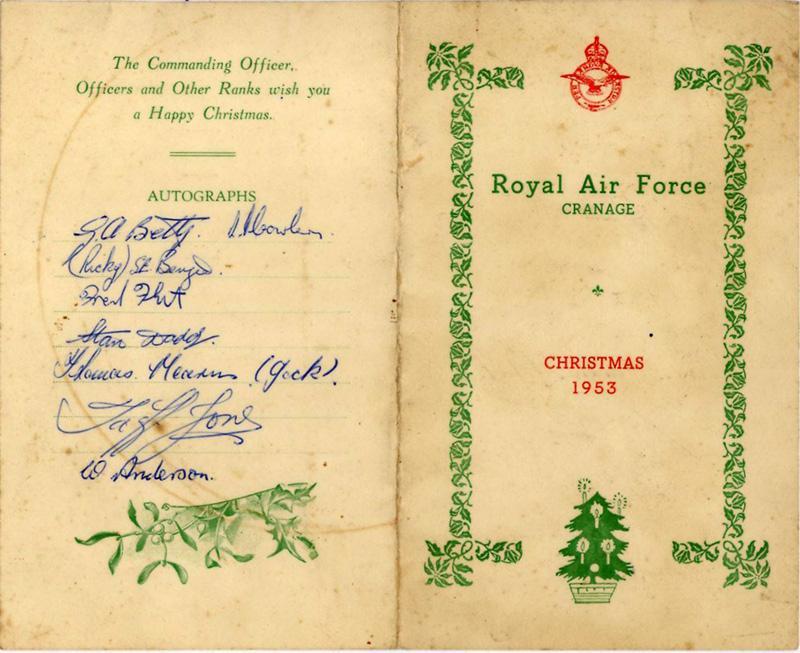 The Commanding Officer,
Officers and Other Ranks wish you
a Happy Christmas.
AUTOGRAPHS
G.A Betty.
(Ricky)
Fred Flint
Stan Dodd.
Thomas Mearns (Jock).
Taff Jones
W Anderson.
Royal Air Force
CRANAGE
CHRISTMAS
1953